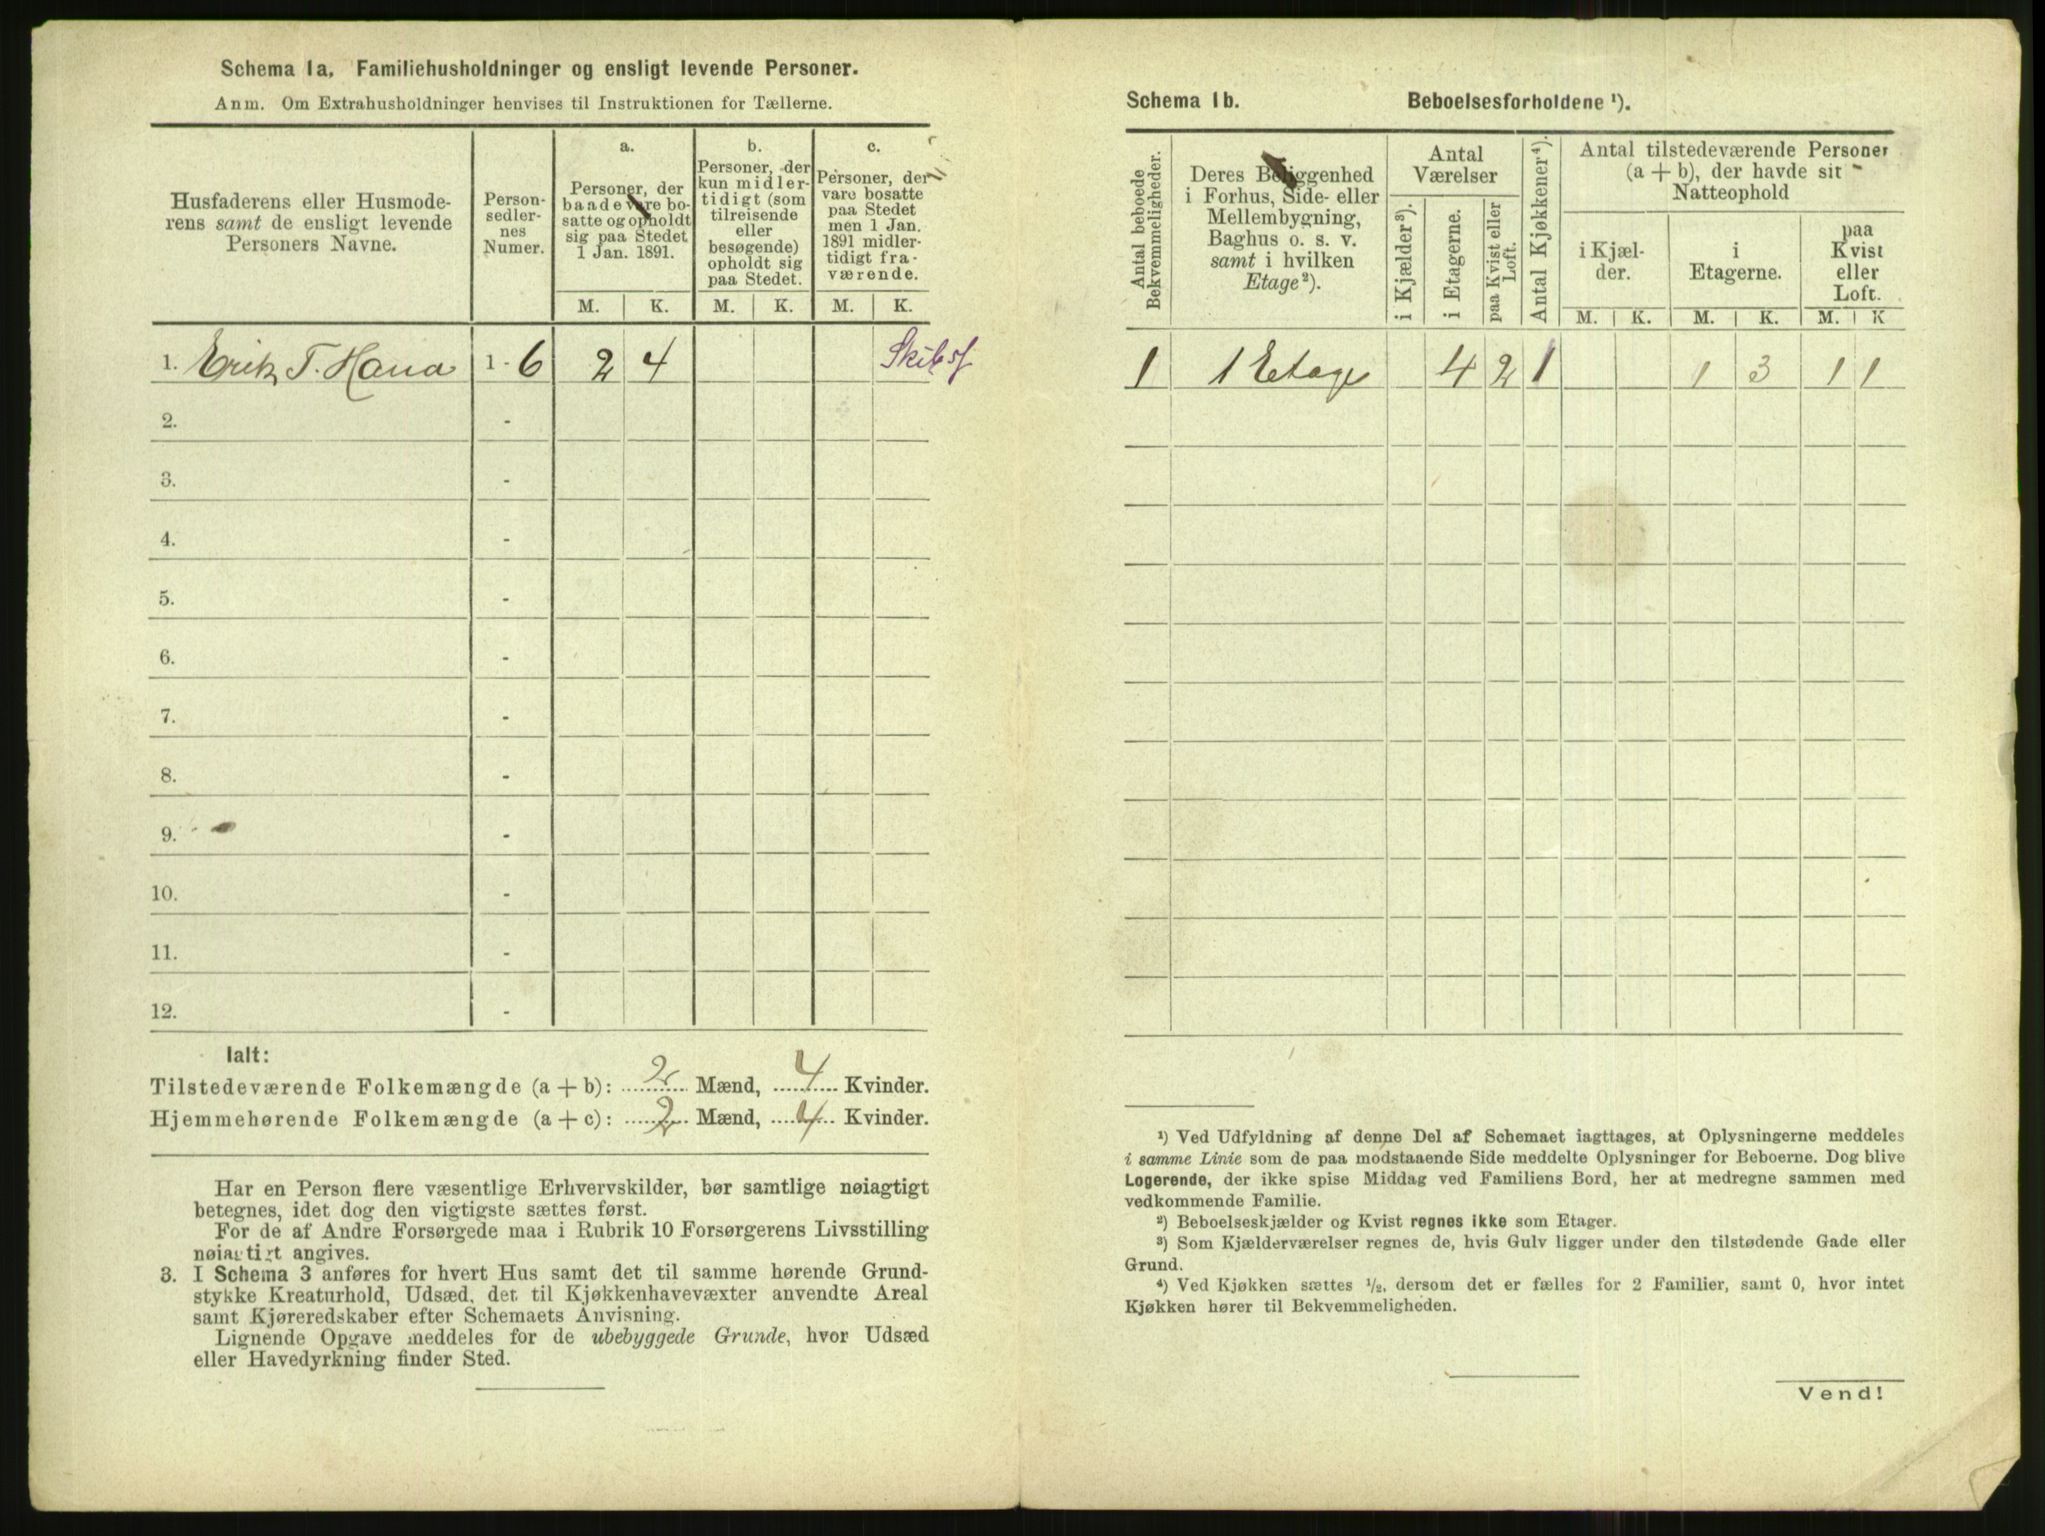 Schema 1a. Familiehusholdninger og ensligt levende Personer.
Anm. Om Extrahusholdninger henvises til Instruktionen for Tællerne.
Husfaderens eller Husmode-
rens samt de ensligt levende
Personers Navne.
Person-
sedler-
nes
Numer.
a.
Personer, der
baade vare bo-
satte og opholdt
sig paa Stedet
1 Jan. 1891.
b.
Personer, der
kun midler-
tidigt (som
tilreisende
eller
besøgende)
opholdt sig
paa Stedet.
c.
Personer, der
vare bosatte
paa Stedet
men 1 Jan.
1891 midler-
tidigt fra-
værende.
M. K. M. K. M. K.
1. Erik T. Hana 1 - 6 2 4 Skibsf
2. -
3. -
4. -
5. -
6. -
7. -
8. -
9. -
10. -
11. -
12. -
Ialt:
Tilstedeværende Folkemængde (a + b): 2 Mænd, 4 Kvinder.
Hjemmehørende Folkemængde (a + c): 2 Mænd, 4 Kvinder.
Har en Person flere væsentlige Erhvervskilder, bør samtlige nøiagtigt
betegnes, idet dog den vigtigste sættes først.
For de af Andre Forsørgede maa i Rubrik 10 Forsørgerens Livsstilling
nøiagtigt angives.
3. I Schema 3 anføres for hvert Hus samt det til samme hørende Grund-
stykke Kreaturhold, Udsæd, det til Kjøkkenhavevæxter anvendte Areal
samt Kjøreredskaber efter Schemaets Anvisning.
Lignende Opgave meddeles for de ubebyggede Grunde, hvor Udsæd
eller Havedyrkning finder Sted.
Schema 1b. Beboelsesforholdene ¹).
Antal beboede
Bekvemmeligheder.
Deres Beliggenhed
i Forhus, Side- eller
Mellembygning,
Baghus o. s. v.
samt i hvilken
Etage²).
Antal
Værelser
i Kjælder³).
i Etagerne.
paa Kvist eller
Loft.
Antal Kjøkkener⁴).
Antal tilstedeværende Personer
(a + b), der havde sit
Natteophold
i Kjæl-
der.
i
Etagerne.
paa
Kvist
eller
Loft.
M. K. M. K. M. K
1 1 Etage 4 2 1 1 3 1 1
¹) Ved Udfyldning af denne Del af Schemaet iagttages, at Oplysningerne meddeles
i samme Linie som de paa modstaaende Side meddelte Oplysninger for Beboerne. Dog blive
Logerende, der ikke spise Middag ved Familiens Bord, her at medregne sammen med
vedkommende Familie.
²) Beboelseskjælder og Kvist regnes ikke som Etager.
³) Som Kjælderværelser regnes de, hvis Gulv ligger under den tilstødende Gade eller
Grund.
⁴) Ved Kjøkken sættes ½, dersom det er fælles for 2 Familier, samt 0, hvor intet
Kjøkken hører til Bekvemmeligheden.
Vend!